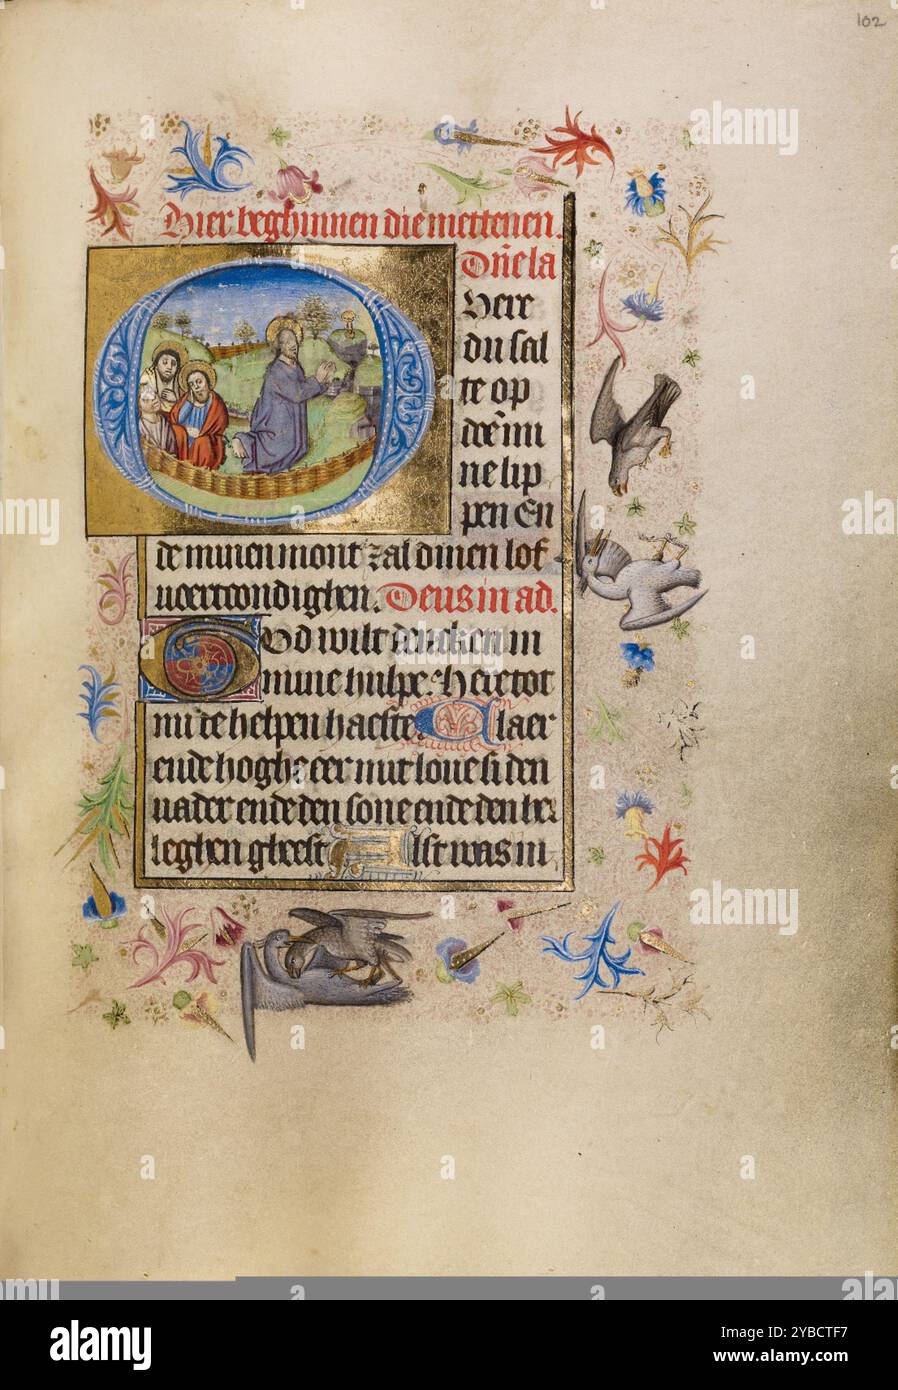 102
Hier beghinnen die mettenen.
Dn̄e la
Here
du sal
te op
doē mi
ne lip
pen En
de minen mont zal dinen lof
uoercondighen. Deus in ad.
God wilt dencken in
mine hulpe. Here tot
mi te helpen haeste. Claer
ende hoghe eer mit loue si den
uader ende den sone ende den hei
leghen gheest Alst was in
alamy
Image ID: 2YBCTF7
www.alamy.com